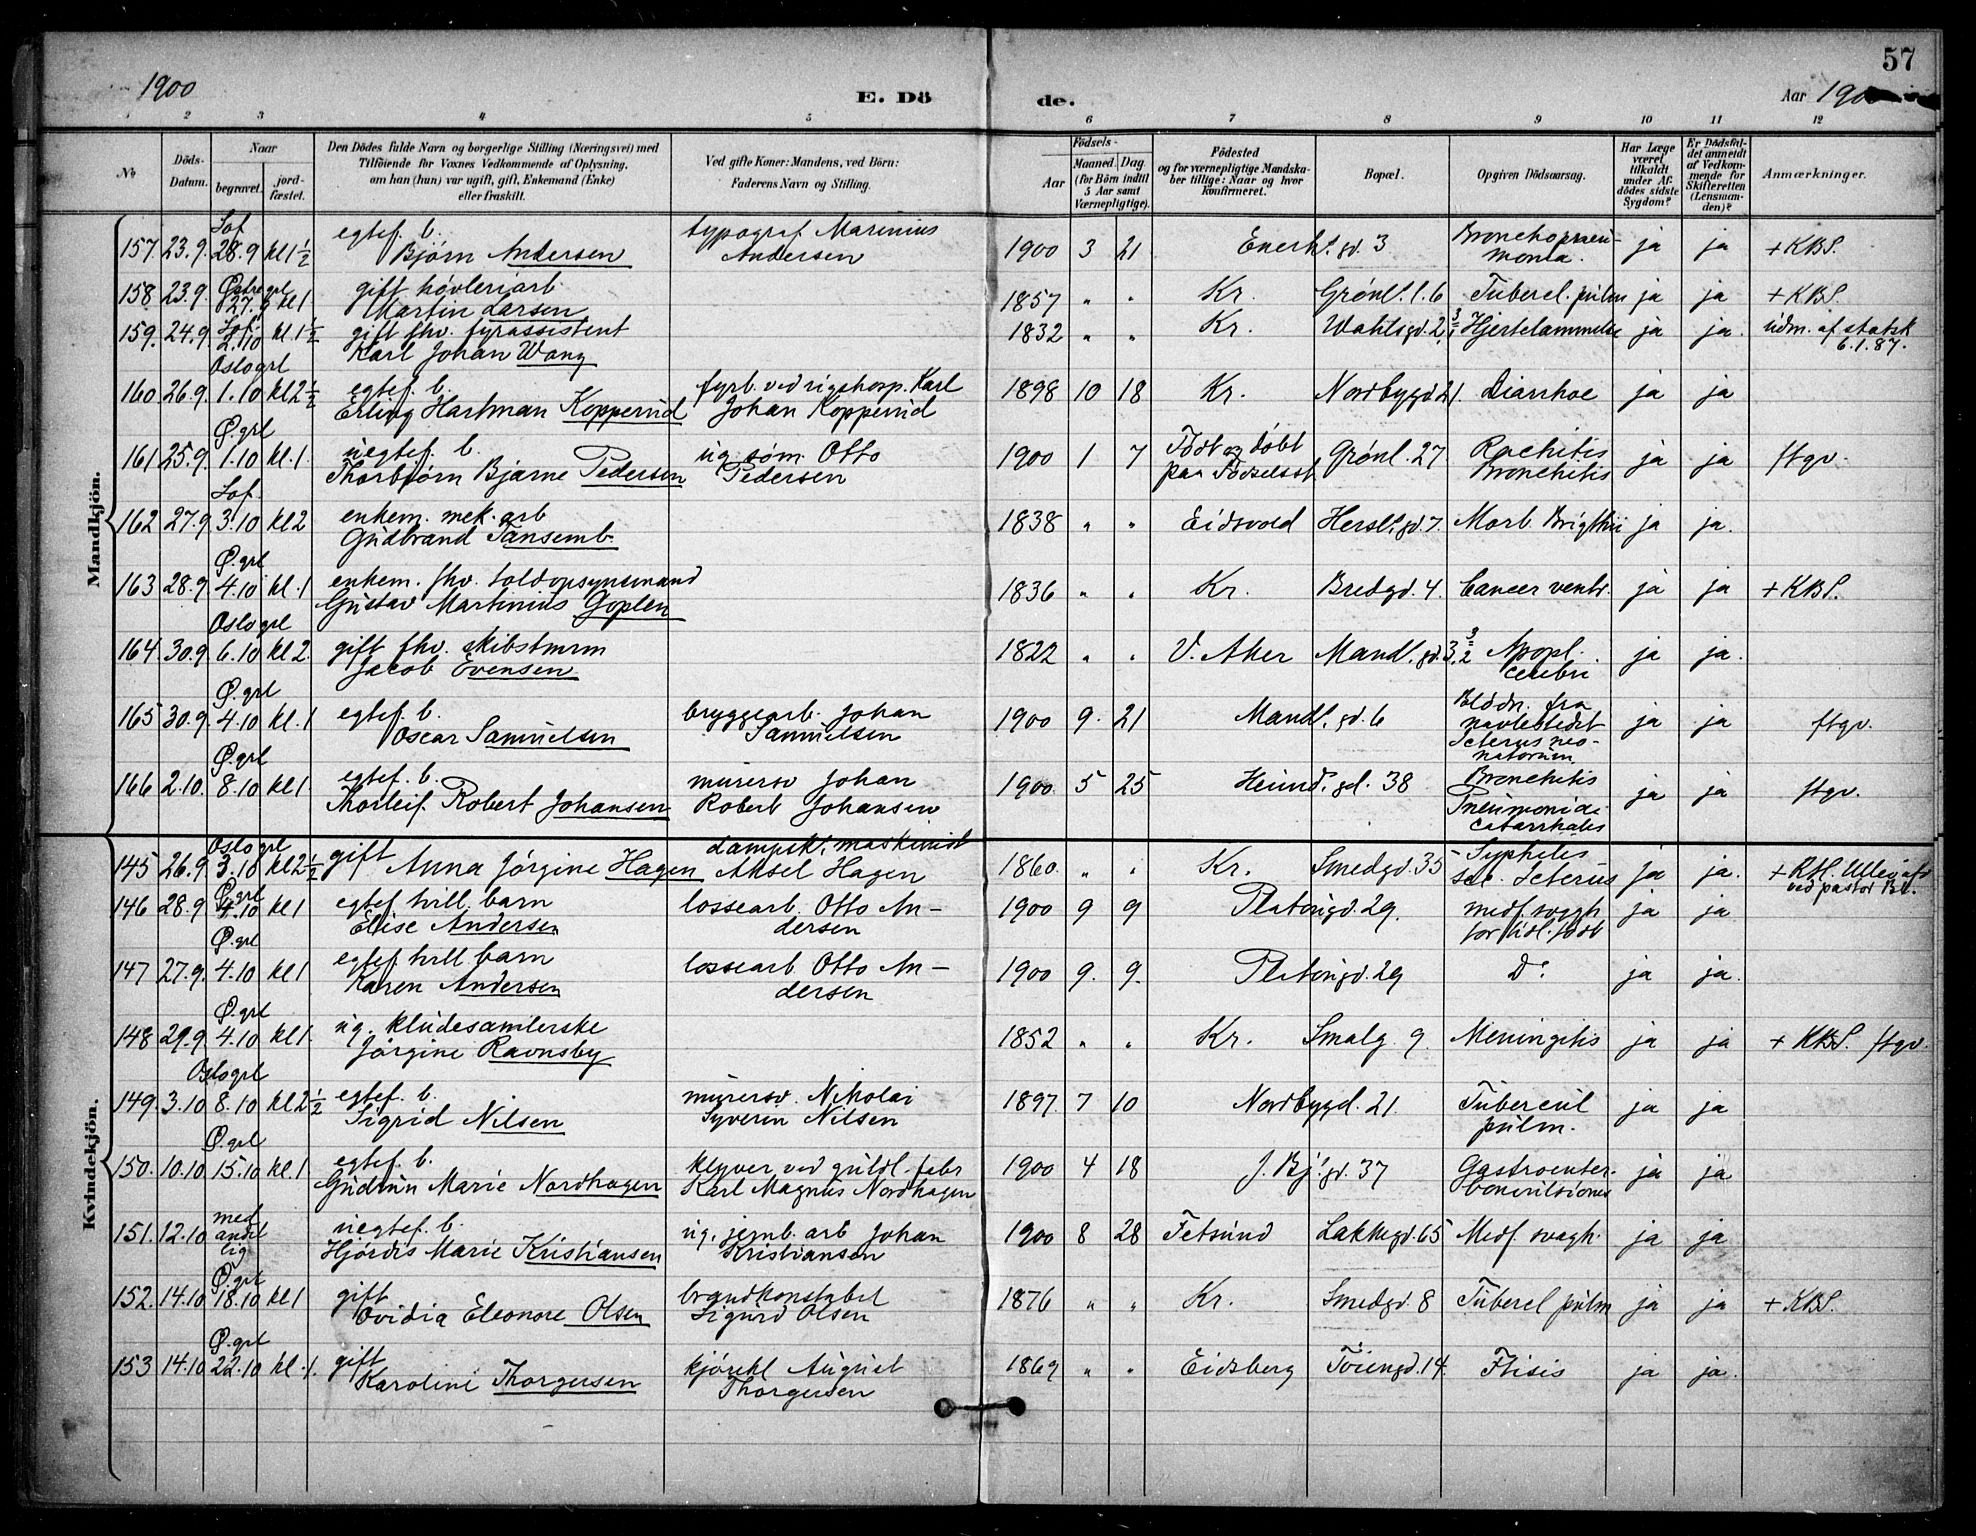 57
1900
E. Dö de.
Aar 190
1 2 3 4 5 6 7 8 9 10 11 12
No
Döds-Datum.
Naar
begravet.
jord-fæstet.
Den Dödes fulde Navn og borgerlige Stilling (Næringsvei) med
Tilföiende för Voxnes Vedkommende af Oplysning,
om han (hun) var ugift, gift, Enkemand (Enke)
eller fraskilt.
Ved gifte Koner: Mandens, ved Börn:
Faderens Navn og Stilling.
Födsels-
Aar
Maaned. Dag.
(for Börn indtil
5 Aar samt
Værnepligtige).
Födested
og for værnepligtige Mandska-
ber tillige: Naar og hvor
konfirmeret.
Bopæl.
Opgiven Dödsaarsag.
Har Læge
været
tilkaldt
under Af-
dödes sidste
Sygdom?
Er Dödsfal-
det anmeldt
af Vedkom-
mende for
Skifteretten
(Lensman-
den)?
Anmærkninger.
Mandkjön.
Sof.
egtef. b. typograf Marinius
157. 23.9. 28.9 kl 1 1/2 Bjørn Andersen Andersen 1900 3 21 Enerh. gd. 3 Bronchopneumonia. ja ja + KBS.
Østre grl
158 23.9. 27.9 kl 1. gift høvleriarb. Martin Larsen 1857 " " Kr. Grønl. l. 6 Tubercl. pulm ja ja + KBS.
Sof.
159. 24.9 2.10 kl. 1 1/2 gift fhv. fyrassistent Karl Johan Wang 1832 " " Kr. Wahlsgd. 2, 3/1 Hjertelammelse ja ja. udm. af statsk 6.1.87.
Oslo grl
160. 26.9. 1.10 kl 2 1/2 egtef. b. Erling Hartman Kopperud fyrb. ved rigshosp. Karl Johan Kopperud 1898 10 18 Kr. Nordbygd. 21. Diarrhoe ja ja
Ø. grl
161 25.9. 1.10 kl. 1. uegtef. b. Thorbjørn Bjarne Pedersen ug. søm. Otto Pedersen 1900 1 7 Født og døbt paa Fødselsst. Grønl. 27 Rachitis Bronchitis ja ja ftgv.
Sof.
162 27.9. 3.10 kl 2 enkem. mek. arb Gudbrand Tansemb. 1838 " " Eidsvold Hersl. gd. 7. Morb. Brigthii ja ja.
Ø. grl
163 28.9. 4.10 kl. 1 enkem. fhv. toldopsynsmand Gustav Martinius Goplen 1836 " " Kr. Bredgd. 4. Cancer ventr. ja ja + KBS.
Oslo grl
164. 30.9. 6.10 kl 2. gift fhv. skibstmrm Jacob Evensen 1822 " " V. Aker Mandl. gd. 3, 3/2 Apopl. cerebri ja ja.
Ø. grl
165 30.9. 4.10 kl. 1 egtef. b. Oscar Samuelsen bryggearb. Johan Samuelsen 1900 9. 21 Mandl. gd. 6 Blødn. fra navlestedet Icterus neo-natorum ja ja ftgv.
Ø. grl
166 2.10. 8.10 kl 1. egtef. b. Thorleif Robert Johansen murersv Johan Robert Johansen 1900 5 25 Heimd. gd. 38 Bronchitis Pneumonia catarrhalis ja ja ftgv.
Kvindekjön.
Oslo grl
145 26.9. 3.10 kl 2 1/2 gift Anna Jørgine Hagen dampsk. maskinist Aksel Hagen 1860. " " Kr. Smedgd. 35 Syphilis sec. Icterus ja ja. + RH. Ullevål ved pastor Bl.
Ø. grl
146 28.9 4.10 kl 1 egtef. tvill. barn Elise Andersen lossearb. Otto An-dersen 1900 9 9 Platousgd. 29. medf. svagh for tidl. født ja ja
Ø. grl
147 27.9. 4.10 kl 1 egtef. tvill. barn Karen Andersen lossearb. Otto An-dersen 1900 9. 9. Platousgd. 29 Do. ja ja.
Ø. grl
148 29.9 4.10 kl 1. ug. kludesamlerske Jørgine Ravnsby 1852 " " Kr. Smalg. 9 Meningitis ja ja + KBS. ftgv.
Oslo grl
149. 3.10 8.10 kl 2 1/2 egtef. b. Sigrid Nilsen murersv. Nikolai Syverin Nilsen 1897. 7 10 Nordbygd. 21. Tubercul pulm. ja ja
Ø. grl
150. 10.10 15.10 kl. 1. egtef. b. Gudrun Marie Nordhagen kløver ved guldl. fabr Karl Magnus Nordhagen 1900 4 18 J. Bj. gd. 37 Gastroenter. Convulsiones ja ja
151. 12.10 medandel ig uegtef. b. Hjørdis Marie Kristiansen ug. jernb. arb Johan Kristiansen 1900 8 28 Fetsund Lakkegd. 65 Medf. svagh. ja ja
Ø. grl
152. 14.10 18.10 kl 1 gift Ovidia Eleonore Olsen brandkonstabel Sigurd Olsen 1876 " " Kr. Smedgd. 8 Tubercl pulm ja ja + KBS.
Ø. grl
153 14.10 22.10 kl. 1. gift Karoline Thorgersen kjørekl August Thorgersen 1869 " " Eidsberg Tøiengd. 14. Ftisis ja ja.